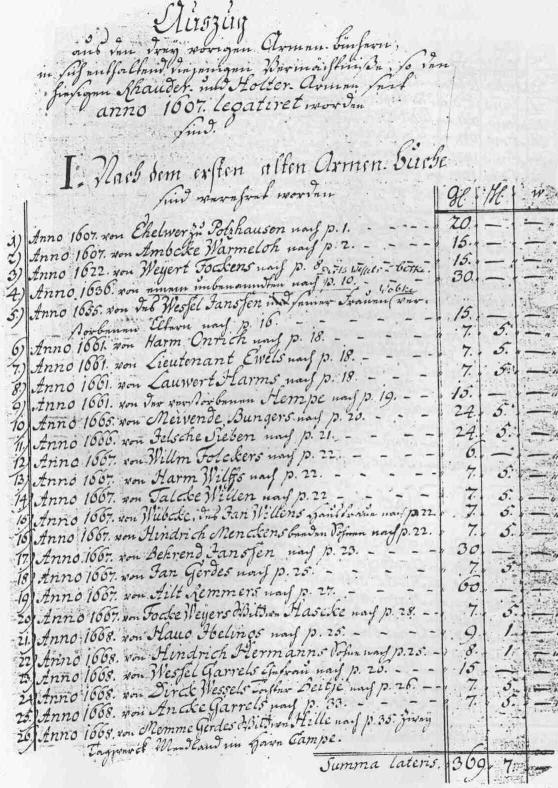 Auszug
aus den drey vorigen Armen-büchern,
in sich enthaltend diejenigen Vermächtniße, so den
hiesigen Rhauder- und Holter-Armen seit
anno 1607. legatiret worden
sind.
I: Nach dem ersten alten Armen-buche
sind verehret worden
1) Anno 1607. von Ehelwer zu Polzhausen nach p. 1. 20 — —
2) Anno 1607. von Ambcke Warmeloh nach p. 2. 15 — —
3) Anno 1622. von Weyert Fockens nach p. 8 15 — —
4) Anno 1636. von einem unbenannten nach p. 10. 30 — —
5) Anno 1655. von des Wessel Janssen und seiner Frauen ver-
storbenen Eltern nach p. 16. 15 — —
6) Anno 1661. von Harm Onrich nach p. 18. 7 5 —
7) Anno 1661. von Lieutenant Ewels nach p. 18. 7 5 —
8) Anno 1661. von Lauwert Harms nach p. 18 7 5 —
9) Anno 1661. von der verstorbenen Hempe nach p. 19. 15 — —
10) Anno 1665. von Meivende Bungers nach p. 20. 24 5 —
11) Anno 1666. von Jelsche Sieben nach p. 21. 24 5 —
12) Anno 1667. von Willm Folckers nach p. 22. 6 — —
13) Anno 1667. von Harm Wilffs nach p. 22. 7 5 —
14) Anno 1667. von Talcke Willen nach p. 22 7 5 —
15) Anno 1667. von Wübcke, des Jan Willens Hausfrau nach p. 22 7 5 —
16) Anno 1667. von Hindrich Menckens beeden Söhnen nach p. 22. 7 5 —
17) Anno 1667. von Behrend Janssen nach p. 23. 30 — —
18) Anno 1667. von Jan Gerdes nach p. 25. 7 5 —
19) Anno 1667. von Hilt Remmers nach p. 27. 60 — —
20) Anno 1667. von Focke Weyers Wittwe Hascke nach p. 28. 7 5 —
21) Anno 1668. von Hauo Ibelings nach p. 25. 9 1 —
22) Anno 1668. von Hindrich Hermanns Sohne nach p. 25. 8 1 —
23) Anno 1668. von Wessel Garrels Ehefrau nach p. 25. 15 — —
24) Anno 1668. von Dirck Wessels Tochter Deitje nach p. 26. 7 5 —
25) Anno 1668. von Ancke Garrels nach p. 33. 7 5 —
26) Anno 1668. von Memme Gerdes Wittwe Hille nach p. 35. zwey
Tagwerck Meedland im Harn Campe.
Summa lateris. 369 7 —